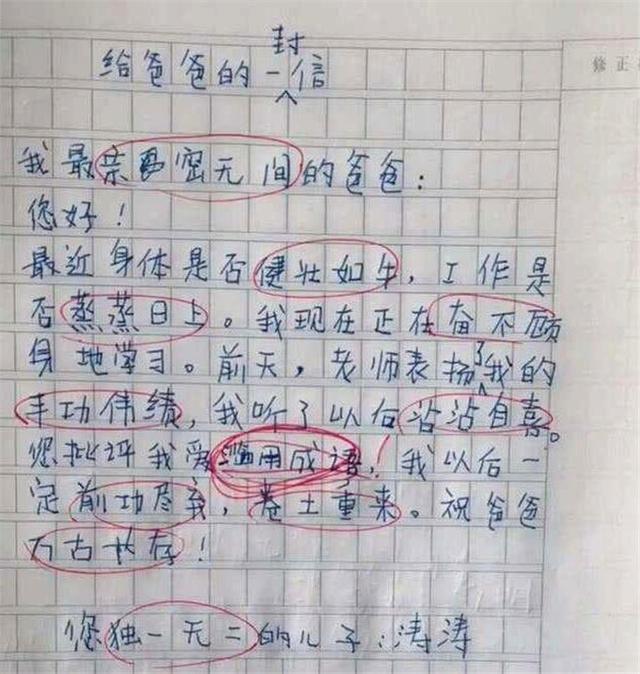 给爸爸的一封信
修正
我最亲密无间的爸爸：
您好！
最近身体是否健壮如牛，工作是
否蒸蒸日上。我现在正在奋不顾
身地学习。前天，老师表扬了我的
丰功伟绩，我听了以后沾沾自喜。
您批评我爱滥用成语，我以后一
定前功尽弃，卷土重来。祝爸爸
万古长存！
您独一无二的儿子：涛涛